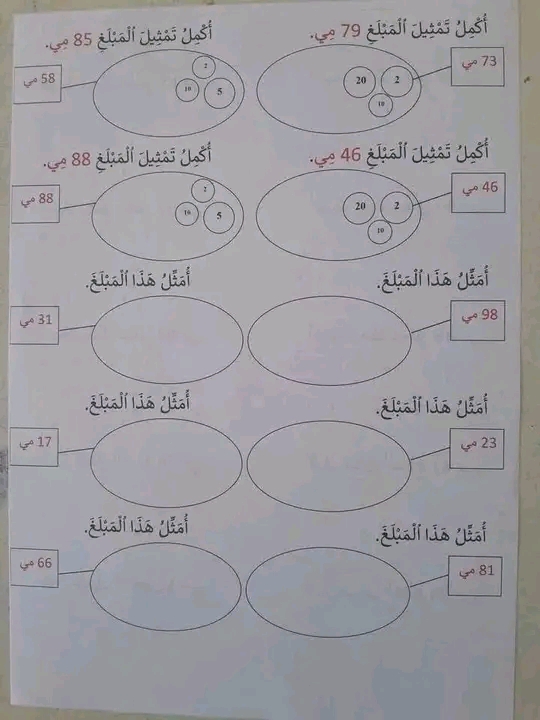 أُكْمِلُ تَمْثِيلَ ٱلْمَبْلَغِ 79 مِي.
73 مي
20
2
10
أُكْمِلُ تَمْثِيلَ ٱلْمَبْلَغِ 85 مِي.
58 مي
2
10
5
أُكْمِلُ تَمْثِيلَ ٱلْمَبْلَغِ 46 مِي.
46 مي
20
2
10
أُكْمِلُ تَمْثِيلَ ٱلْمَبْلَغِ 88 مِي.
88 مي
2
10
5
أُمَثِّلُ هَذَا ٱلْمَبْلَغَ.
98 مي
أُمَثِّلُ هَذَا ٱلْمَبْلَغَ.
31 مي
أُمَثِّلُ هَذَا ٱلْمَبْلَغَ.
23 مي
أُمَثِّلُ هَذَا ٱلْمَبْلَغَ.
17 مي
أُمَثِّلُ هَذَا ٱلْمَبْلَغَ.
81 مي
أُمَثِّلُ هَذَا ٱلْمَبْلَغَ.
66 مي